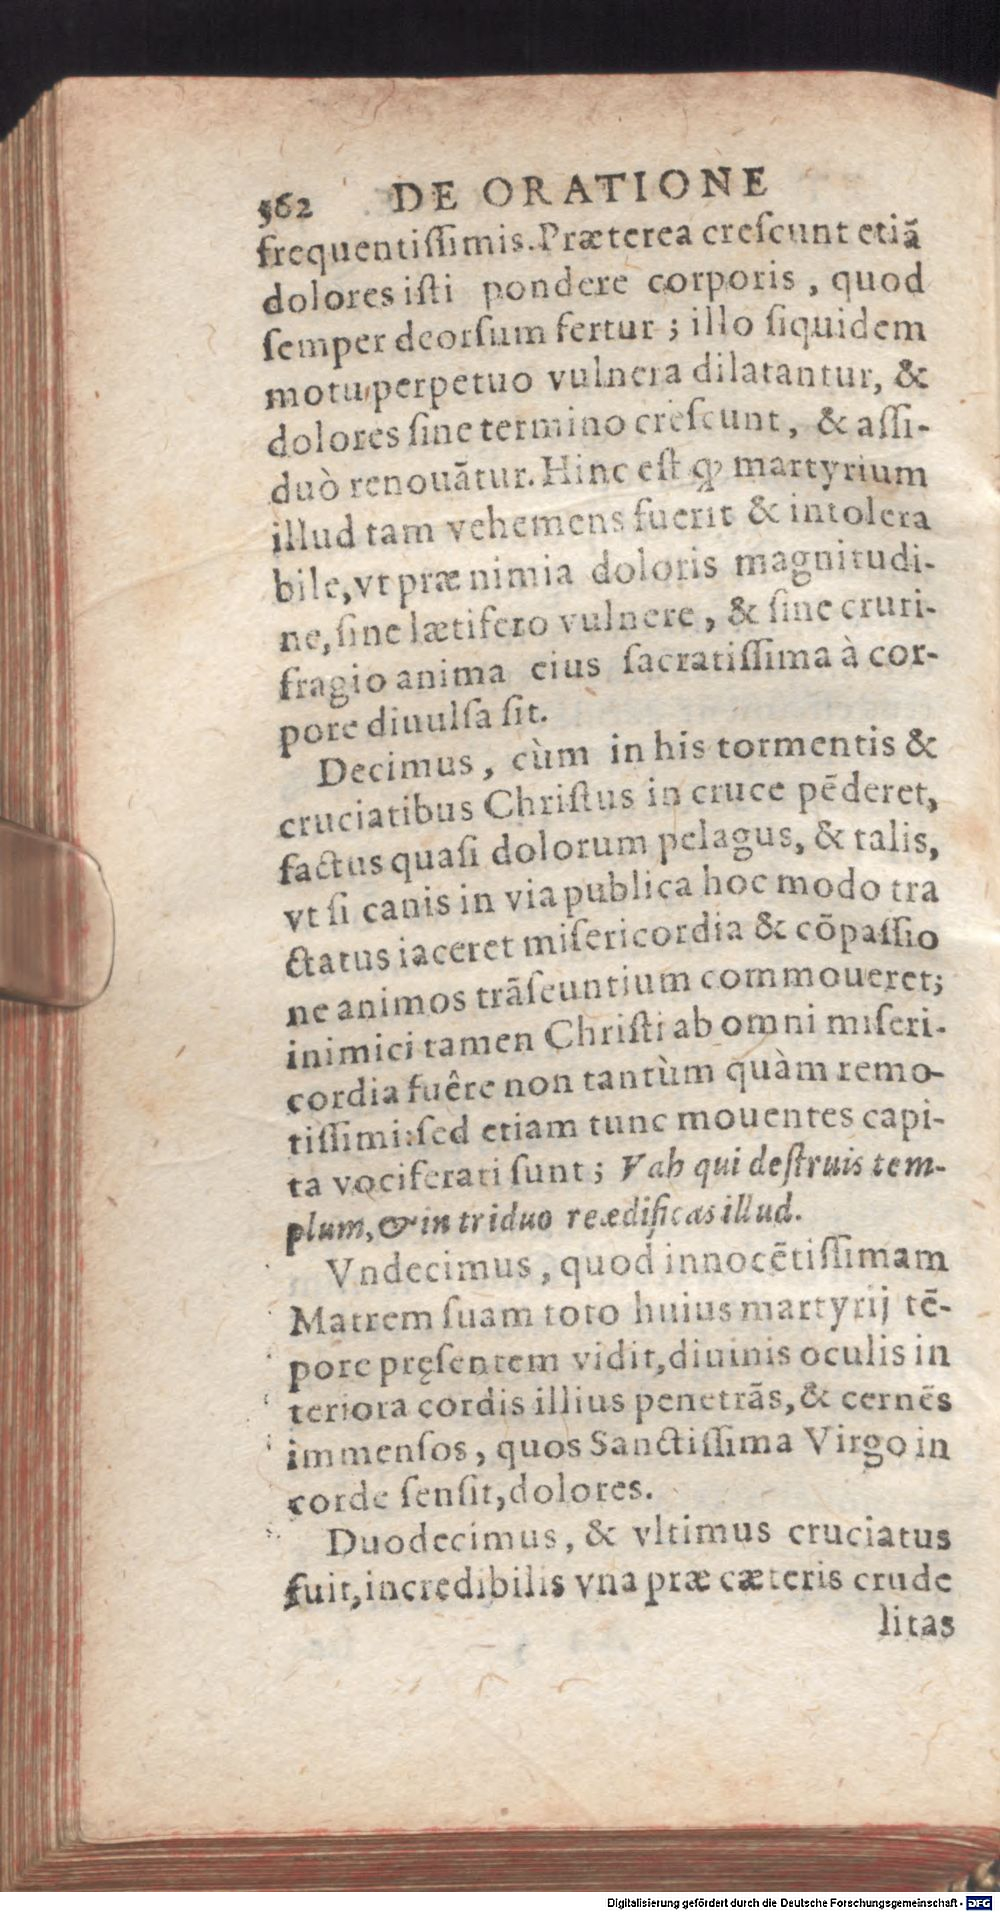 562 DE ORATIONE
frequentiſſimis. Præterea creſcunt etiã
dolores iſti pondere corporis, quod
ſemper deorſum fertur; illo ſiquidem
motu perpetuo vulnera dilatantur, &
dolores ſine termino creſcunt, & aſſi-
duò renouãtur. Hinc eſt ꝙ martyrium
illud tam vehemens fuerit & intolera
bile, vt præ nimia doloris magnitudi-
ne, ſine lætifero vulnere, & ſine cruri-
fragio anima eius ſacratiſſima à cor-
pore diuulſa ſit.
Decimus, cùm in his tormentis &
cruciatibus Chriſtus in cruce pẽderet,
factus quaſi dolorum pelagus, & talis,
vt ſi canis in via publica hoc modo tra
ctatus iaceret miſericordia & cõpaſſio
ne animos trãſeuntium commoueret;
inimici tamen Chriſti ab omni miſeri-
cordia fuêre non tantùm quàm remo-
tiſſimi: ſed etiam tunc mouentes capi-
ta vociferati ſunt; Vah qui deſtruis tem-
plum, & in triduo reædificas illud.
Vndecimus, quod innocẽtiſſimam
Matrem ſuam toto huius martyrij tẽ-
pore pręſentem vidit, diuinis oculis in
teriora cordis illius penetrãs, & cernẽs
immenſos, quos Sanctiſſima Virgo in
corde ſenſit, dolores.
Duodecimus, & vltimus cruciatus
fuit, incredibilis vna præ cæteris crude
litas
Digitalisierung gefördert durch die Deutsche Forschungsgemeinschaft - DFG